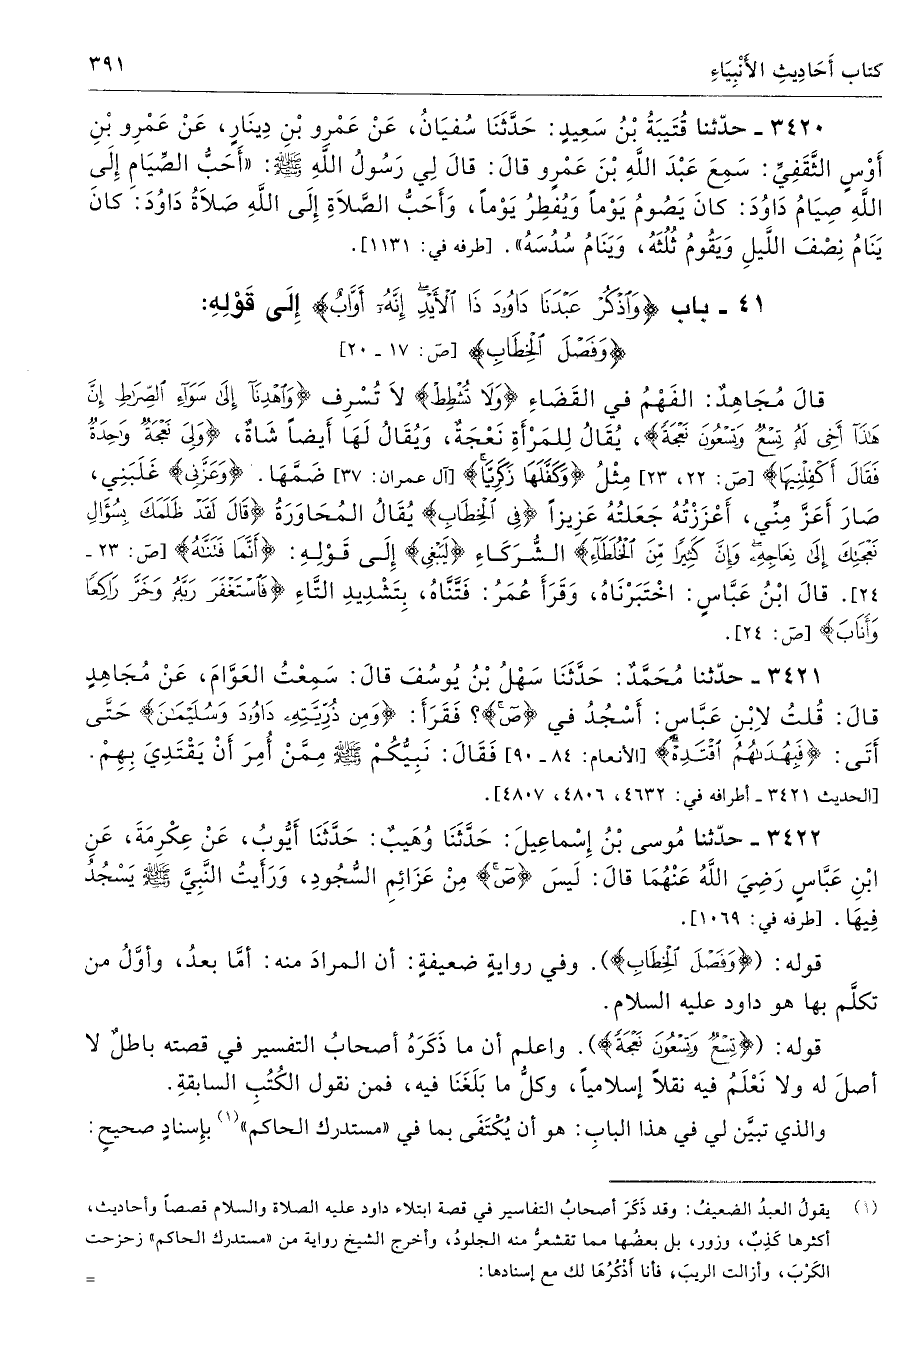 كتاب أَحَادِيثِ الأَنْبِيَاءِ ٣٩١
٣٤٢٠ ـ حدّثنا قُتَيبَةُ بْنُ سَعِيدٍ: حَدَّثَنَا سُفيَانُ، عَنْ عَمْرِو بْنِ دِينَارٍ، عَنْ عَمْرِو بْنِ
أَوْسٍ الثَّقَفِيِّ: سَمِعَ عَبْدَ اللَّهِ بْنَ عَمْرٍو قالَ: قالَ لِي رَسُولُ اللَّهِ ﷺ: «أَحَبُّ الصِّيَامِ إِلَى
اللَّهِ صِيَامُ دَاوُدَ: كانَ يَصُومُ يَوْماً وَيُفطِرُ يَوْماً، وَأَحَبُّ الصَّلاَةِ إِلَى اللَّهِ صَلاَةُ دَاوُدَ: كانَ
يَنَامُ نِصْفَ اللَّيلِ وَيَقُومُ ثُلُثَهُ، وَيَنَامُ سُدُسَهُ». [طرفه في: ١١٣١].
٤١ ـ باب ﴿وَٱذْكُرْ عَبْدَنَا دَاوُۥدَ ذَا ٱلْأَيْدِۖ إِنَّهُۥٓ أَوَّابٌ﴾ إِلَى قَوْلِهِ:
﴿وَفَصْلَ ٱلْخِطَابِ﴾ [صَ: ١٧ ـ ٢٠]
قالَ مُجَاهِدٌ: الفَهْمُ في القَضَاءِ ﴿وَلَا تُشْطِطْ﴾ لاَ تُسْرِف ﴿وَٱهْدِنَآ إِلَىٰ سَوَآءِ ٱلصِّرَٰطِ إِنَّ
هَٰذَآ أَخِى لَهُۥ تِسْعٌ وَتِسْعُونَ نَعْجَةً﴾، يُقَالُ لِلمَرْأَةِ نَعْجَةٌ، وَيُقَالُ لَهَا أَيضاً شَاةٌ، ﴿وَلِىَ نَعْجَةٌ وَٰحِدَةٌ
فَقَالَ أَكْفِلْنِيهَا﴾ [صَ: ٢٢، ٢٣] مِثْلُ ﴿وَكَفَّلَهَا زَكَرِيَّا﴾ [آل عمران: ٣٧] ضَمَّهَا. ﴿وَعَزَّنِى﴾ غَلَبَنِي،
صَارَ أَعَزَّ مِنِّي، أَعْزَزْتُهُ جَعَلتُهُ عَزِيزاً ﴿فِى ٱلْخِطَابِ﴾ يُقَالُ المُحَاوَرَةُ ﴿قَالَ لَقَدْ ظَلَمَكَ بِسُؤَالِ
نَعْجَتِكَ إِلَىٰ نِعَاجِهِۦۖ وَإِنَّ كَثِيرًا مِّنَ ٱلْخُلَطَآءِ﴾ الشُّرَكَاءِ ﴿لَيَبْغِى﴾ إِلَى قَوْلِهِ: ﴿أَنَّمَا فَتَنَّٰهُ﴾ [صَ: ٢٣ ـ
٢٤]. قالَ ابْنُ عَبَّاسٍ: اخْتَبَرْنَاهُ، وَقَرَأَ عُمَرُ: فَتَّنَّاهُ، بِتَشْدِيدِ التَّاءِ ﴿فَٱسْتَغْفَرَ رَبَّهُۥ وَخَرَّ رَاكِعًا
وَأَنَابَ﴾ [صَ: ٢٤].
٣٤٢١ ـ حدّثنا مُحَمَّدٌ: حَدَّثَنَا سَهْلُ بْنُ يُوسُفَ قالَ: سَمِعْتُ العَوَّامَ، عَنْ مُجَاهِدٍ
قالَ: قُلتُ لاِبْنِ عَبَّاسٍ: أَسْجُدُ في ﴿صٓ﴾؟ فَقَرَأَ: ﴿وَمِن ذُرِّيَّتِهِۦ دَاوُۥدَ وَسُلَيْمَٰنَ﴾ حَتَّى
أَتَى: ﴿فَبِهُدَىٰهُمُ ٱقْتَدِهْ﴾ [الأنعام: ٨٤ ـ ٩٠] فَقَالَ: نَبِيُّكُمْ ﷺ مِمَّنْ أُمِرَ أَنْ يَقْتَدِيَ بِهِمْ.
[الحديث ٣٤٢١ ـ أطرافه في: ٤٦٣٢، ٤٨٠٦، ٤٨٠٧].
٣٤٢٢ ـ حدّثنا مُوسى بْنُ إِسْماعِيلَ: حَدَّثَنَا وُهَيبٌ: حَدَّثَنَا أَيُّوبُ، عَنْ عِكْرِمَةَ، عَنِ
ابْنِ عَبَّاسٍ رَضِيَ اللَّهُ عَنْهُمَا قالَ: لَيسَ ﴿صٓ﴾ مِنْ عَزَائِمِ السُّجُودِ، وَرَأَيتُ النَّبِيَّ ﷺ يَسْجُدُ
فِيهَا. [طرفه في: ١٠٦٩].
قوله: (﴿وَفَصْلَ ٱلْخِطَابِ﴾). وفي روايةٍ ضعيفةٍ: أن المرادَ منه: أمَّا بعدُ، وأوَّلُ من
تكلَّم بها هو داود عليه السلام.
قوله: (﴿تِسْعٌ وَتِسْعُونَ نَعْجَةً﴾). واعلم أن ما ذَكَرَهُ أصحابُ التفسير في قصته باطلٌ لا
أصلَ له ولا نَعْلَمُ فيه نقلاً إسلامياً، وكلُّ ما بَلَغَنَا فيه، فمن نقول الكُتُبِ السابقةِ.
والذي تبيَّن لي في هذا البابِ: هو أن يُكْتَفَى بما في «مستدرك الحاكم»(١) بإسنادٍ صحيحٍ:
(١) يقولُ العبدُ الضعيفُ: وقد ذَكَرَ أصحابُ التفاسير في قصة ابتلاء داود عليه الصلاة والسلام قصصاً وأحاديث،
أكثرها كَذِبٌ، وزور، بل بعضُها مما تقشعرُّ منه الجلودُ، وأخرج الشيخ رواية من «مستدرك الحاكم» زحزحت
الكَرْبَ، وأزالت الريبَ، فأنا أَذْكُرُهَا لك مع إسنادها: =